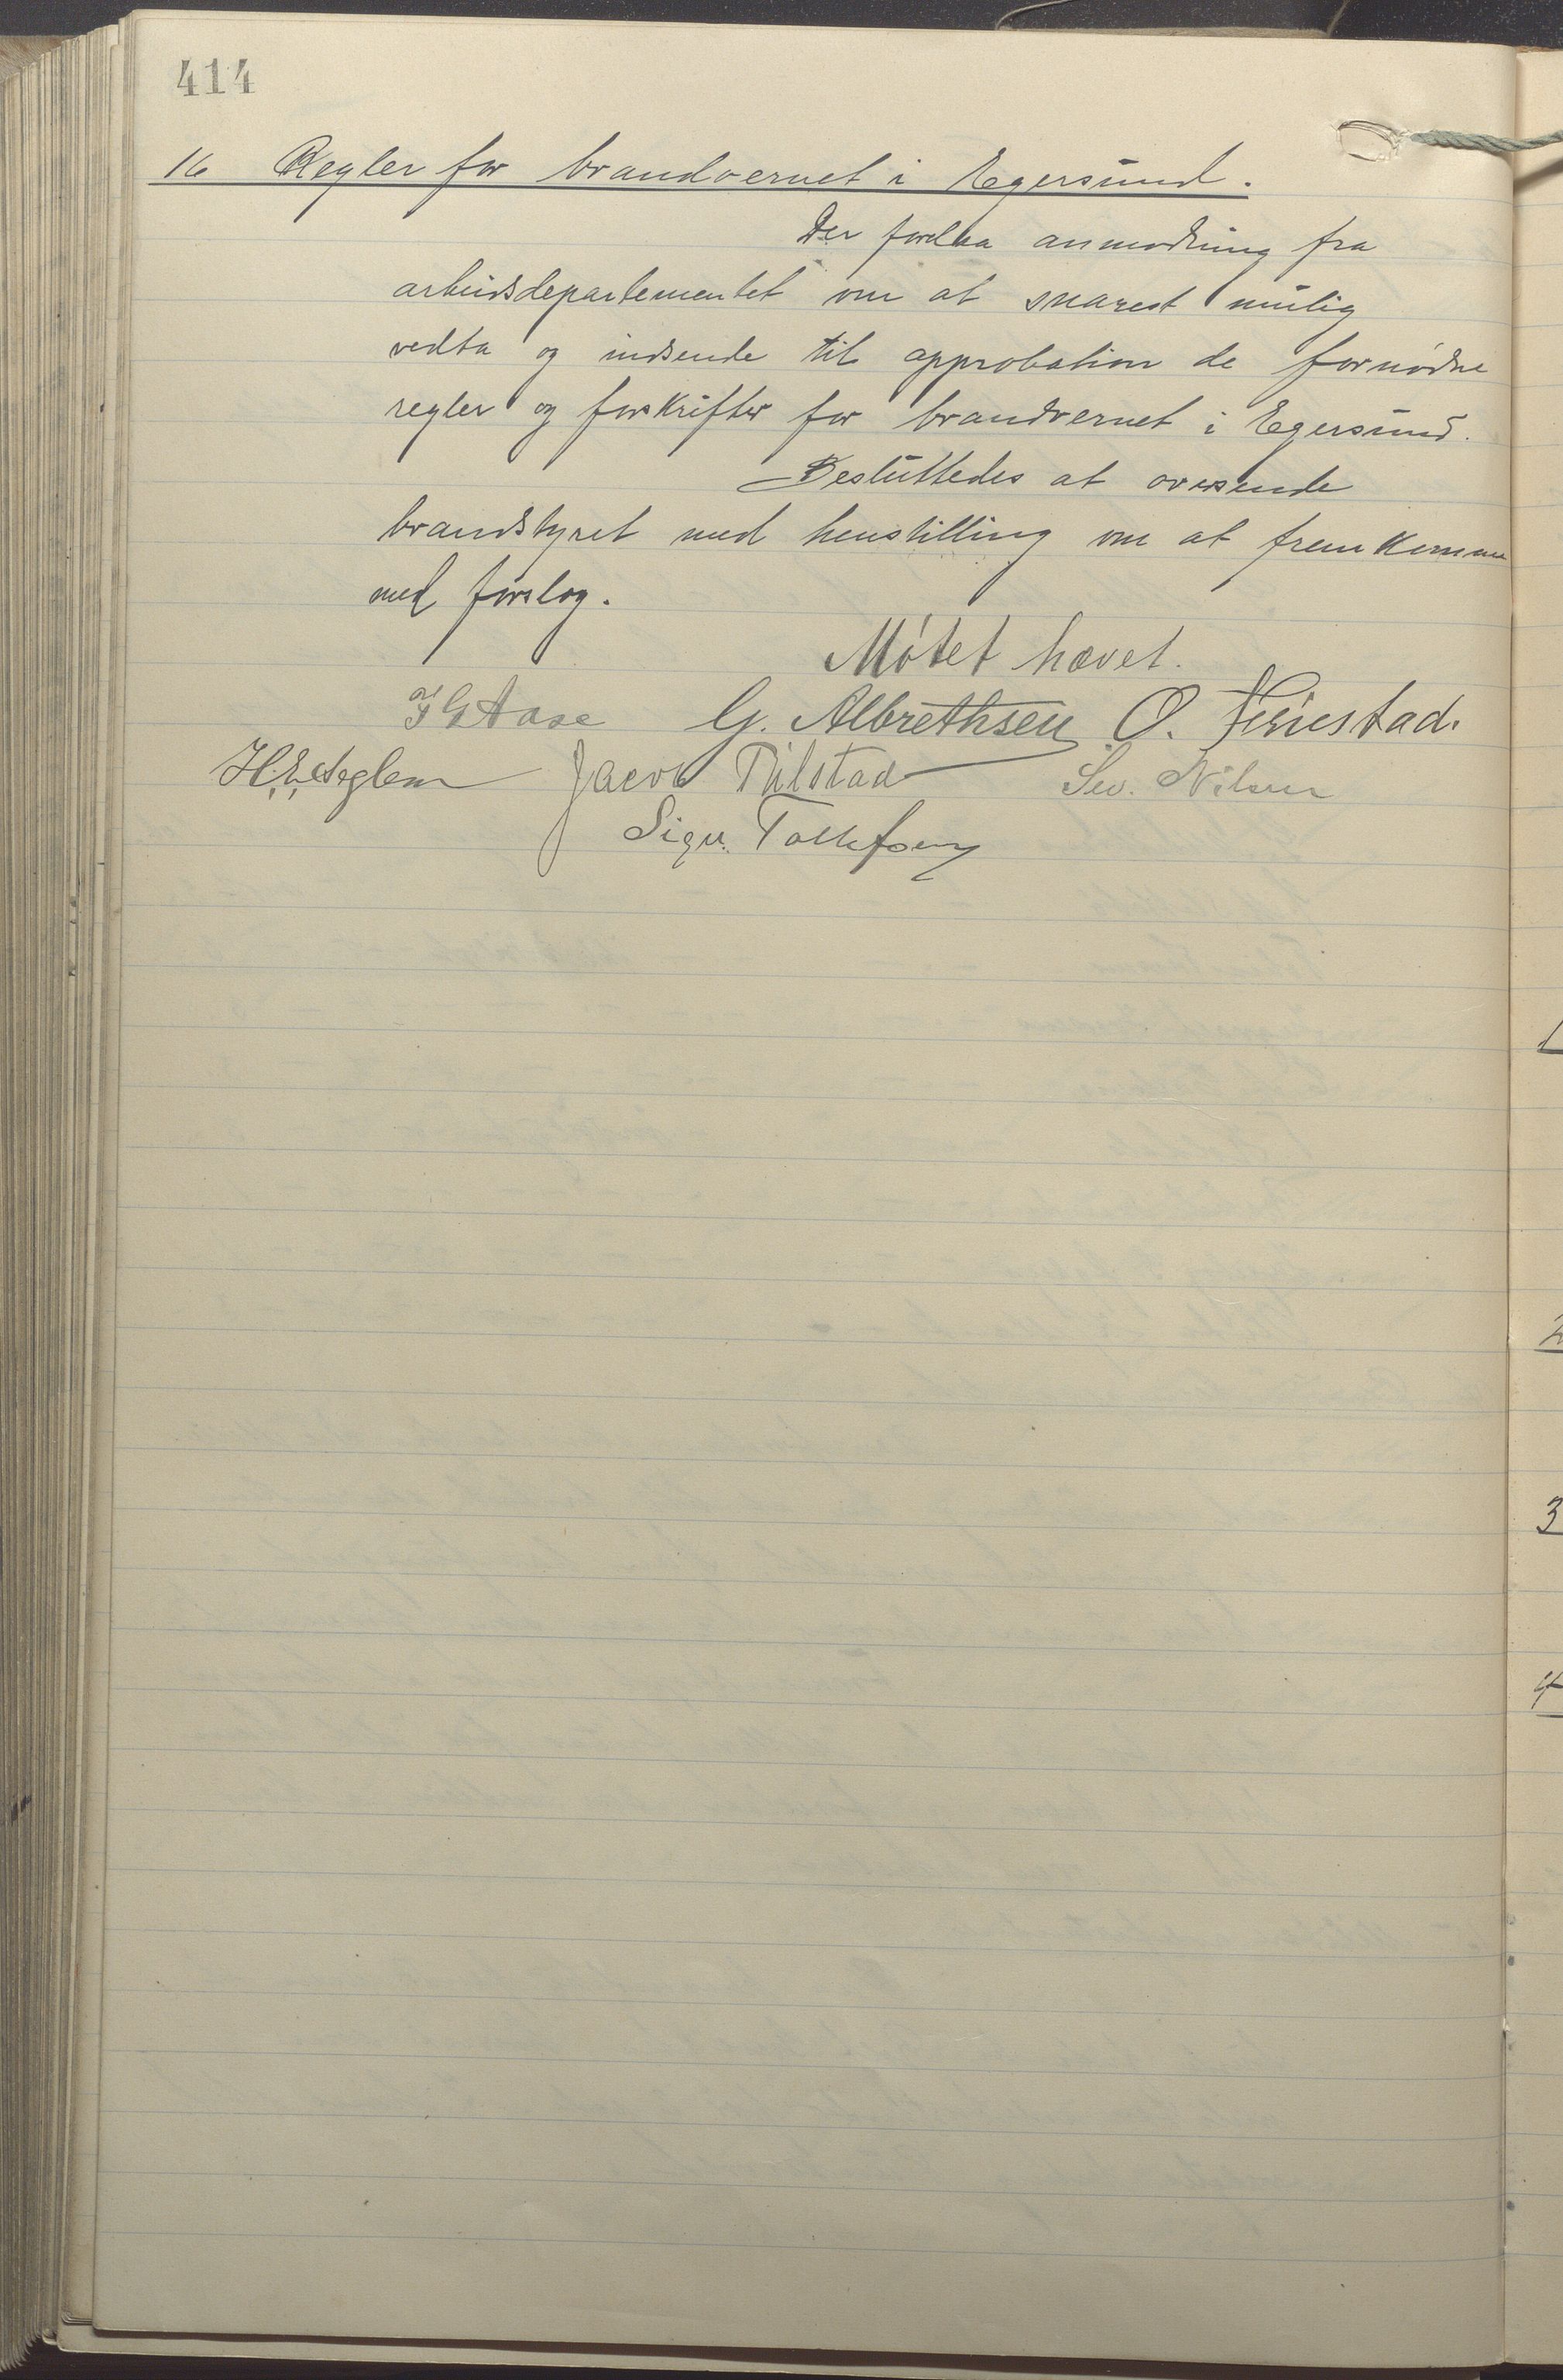 414
16 Regler for brandvernet i Egersund.
Der forelaa anmodning fra
arbeidsdepartementet om at snarest mulig
vedta og indsende til approbation de fornødne
regler og forskrifter for brandvernet i Egersund.
Besluttedes at oversende
brandstyret med henstilling om at fremkomme
med forslag.
Møtet hævet.
Aase G. Albrethsen O. Feiestad.
H. E. Seglem Jacob Pilstad Sev. Nilsen
Sigv. Tollefsen
1
2
3
4